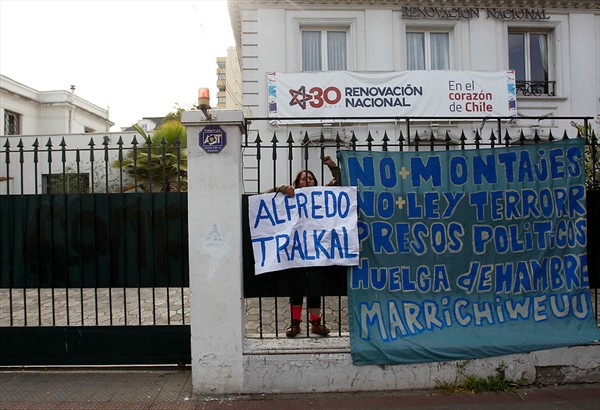 RENOVACION NACIONAL
30 RENOVACIÓN
NACIONAL
En el
corazón
de Chile
ADT
ALFREDO
TRALKAL
NO+MONTAJES
NO+LEY TERRORR
PRESOS POLITICOS
HUELGA deHAMBRE
MARRICHIWEUU